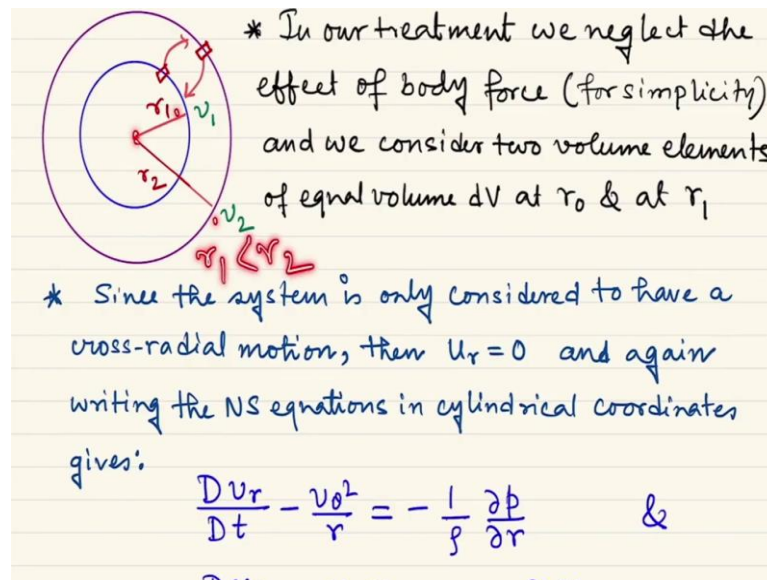 * In our treatment we neglect the
effect of body force (for simplicity)
and we consider two volume elements
of equal volume dV at r₀ & at r₁
r₁
v₁
r₂
v₂
r₁ < r₂
* Since the system is only considered to have a
cross-radial motion, then Uᵣ = 0 and again
writing the NS equations in cylindrical coordinates
gives:
Dvᵣ/Dt - v_θ²/r = - 1/ρ ∂p/∂r &